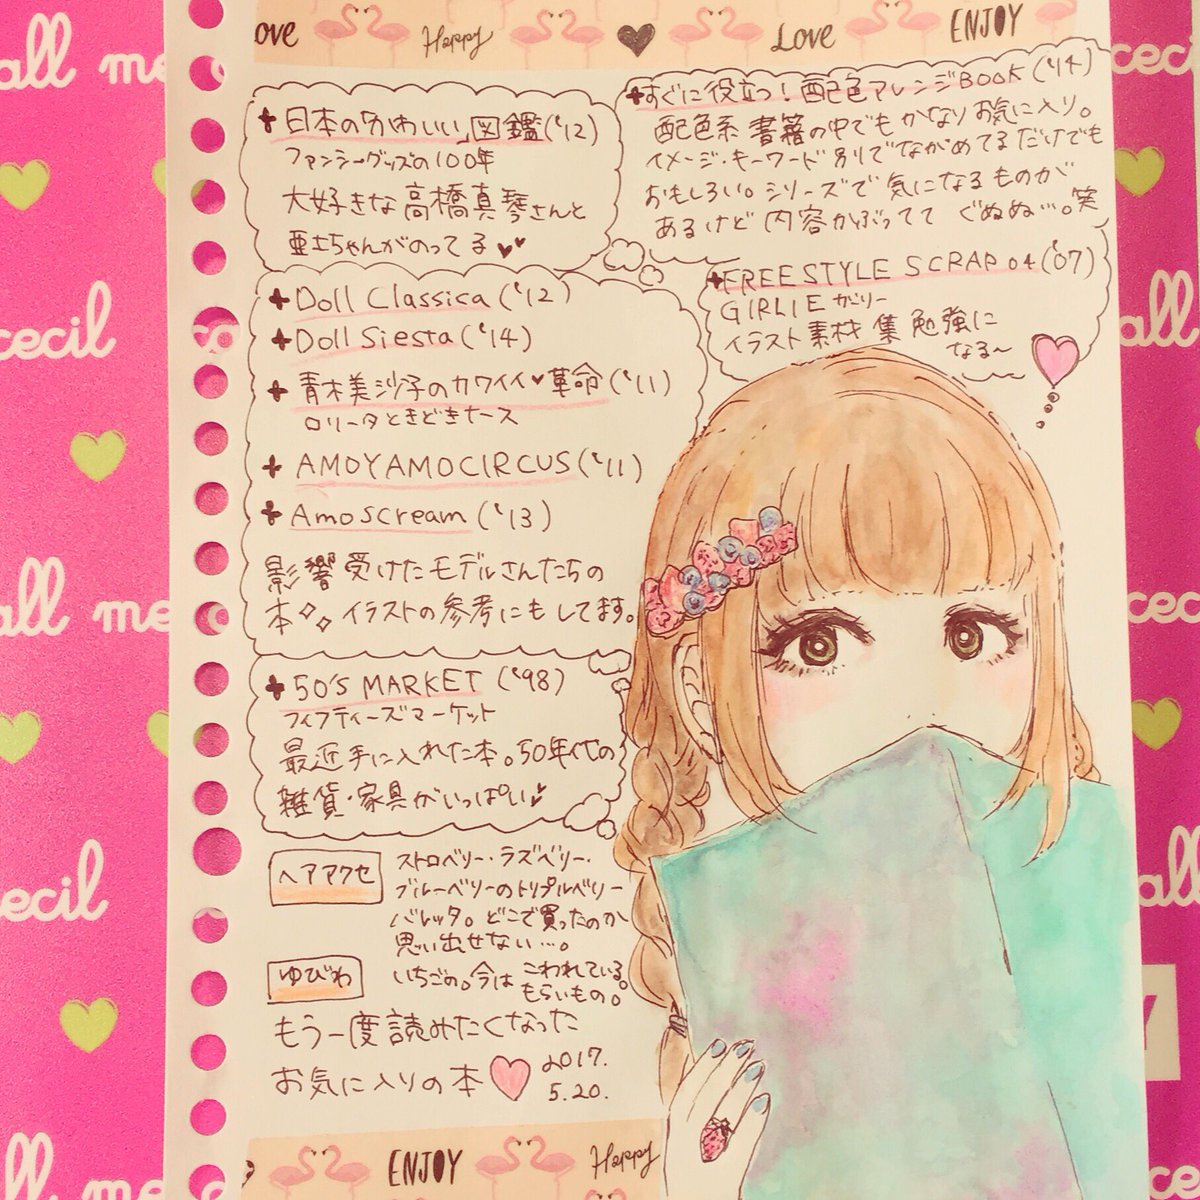 ove Happy Love ENJOY
日本の「かわいい」図鑑('12)
ファンシーグッズの100年
大好きな高橋真琴さんと
亜土ちゃんがのってる
すぐに役立つ!配色アレンジBOOK('14)
配色系書籍の中でもかなりお気に入り。
イメージ・キーワード別でながめてるだけでも
おもしろい。シリーズで気になるものが
あるけど内容かぶってて ぐぬぬ…。笑
FREESTYLE SCRAP 04('07)
GIRLIE ガーリー
イラスト素材集 勉強に
なる〜
Doll Classica('12)
Doll Siesta('14)
青木美沙子のカワイイ♥革命('11)
ロリータときどきナース
AMOYAMOCIRCUS('11)
Amoscream('13)
影響受けたモデルさんたちの
本✧✧イラストの参考にもしてます。
50'S MARKET('98)
フィフティーズマーケット
最近手に入れた本。50年代の
雑貨・家具がいっぱい♥
ヘアアクセ
ストロベリー・ラズベリー・
ブルーベリーのトリプルベリー
バレッタ。どこで買ったのか
思い出せない…。
ゆびわ
いちごの。今はこわれている。
もらいもの。
もう一度読みたくなった
お気に入りの本♥
2017.
5.20.
ENJOY Happy
all me
cecil
all me
cecil
all
cecil
all
cecil
all